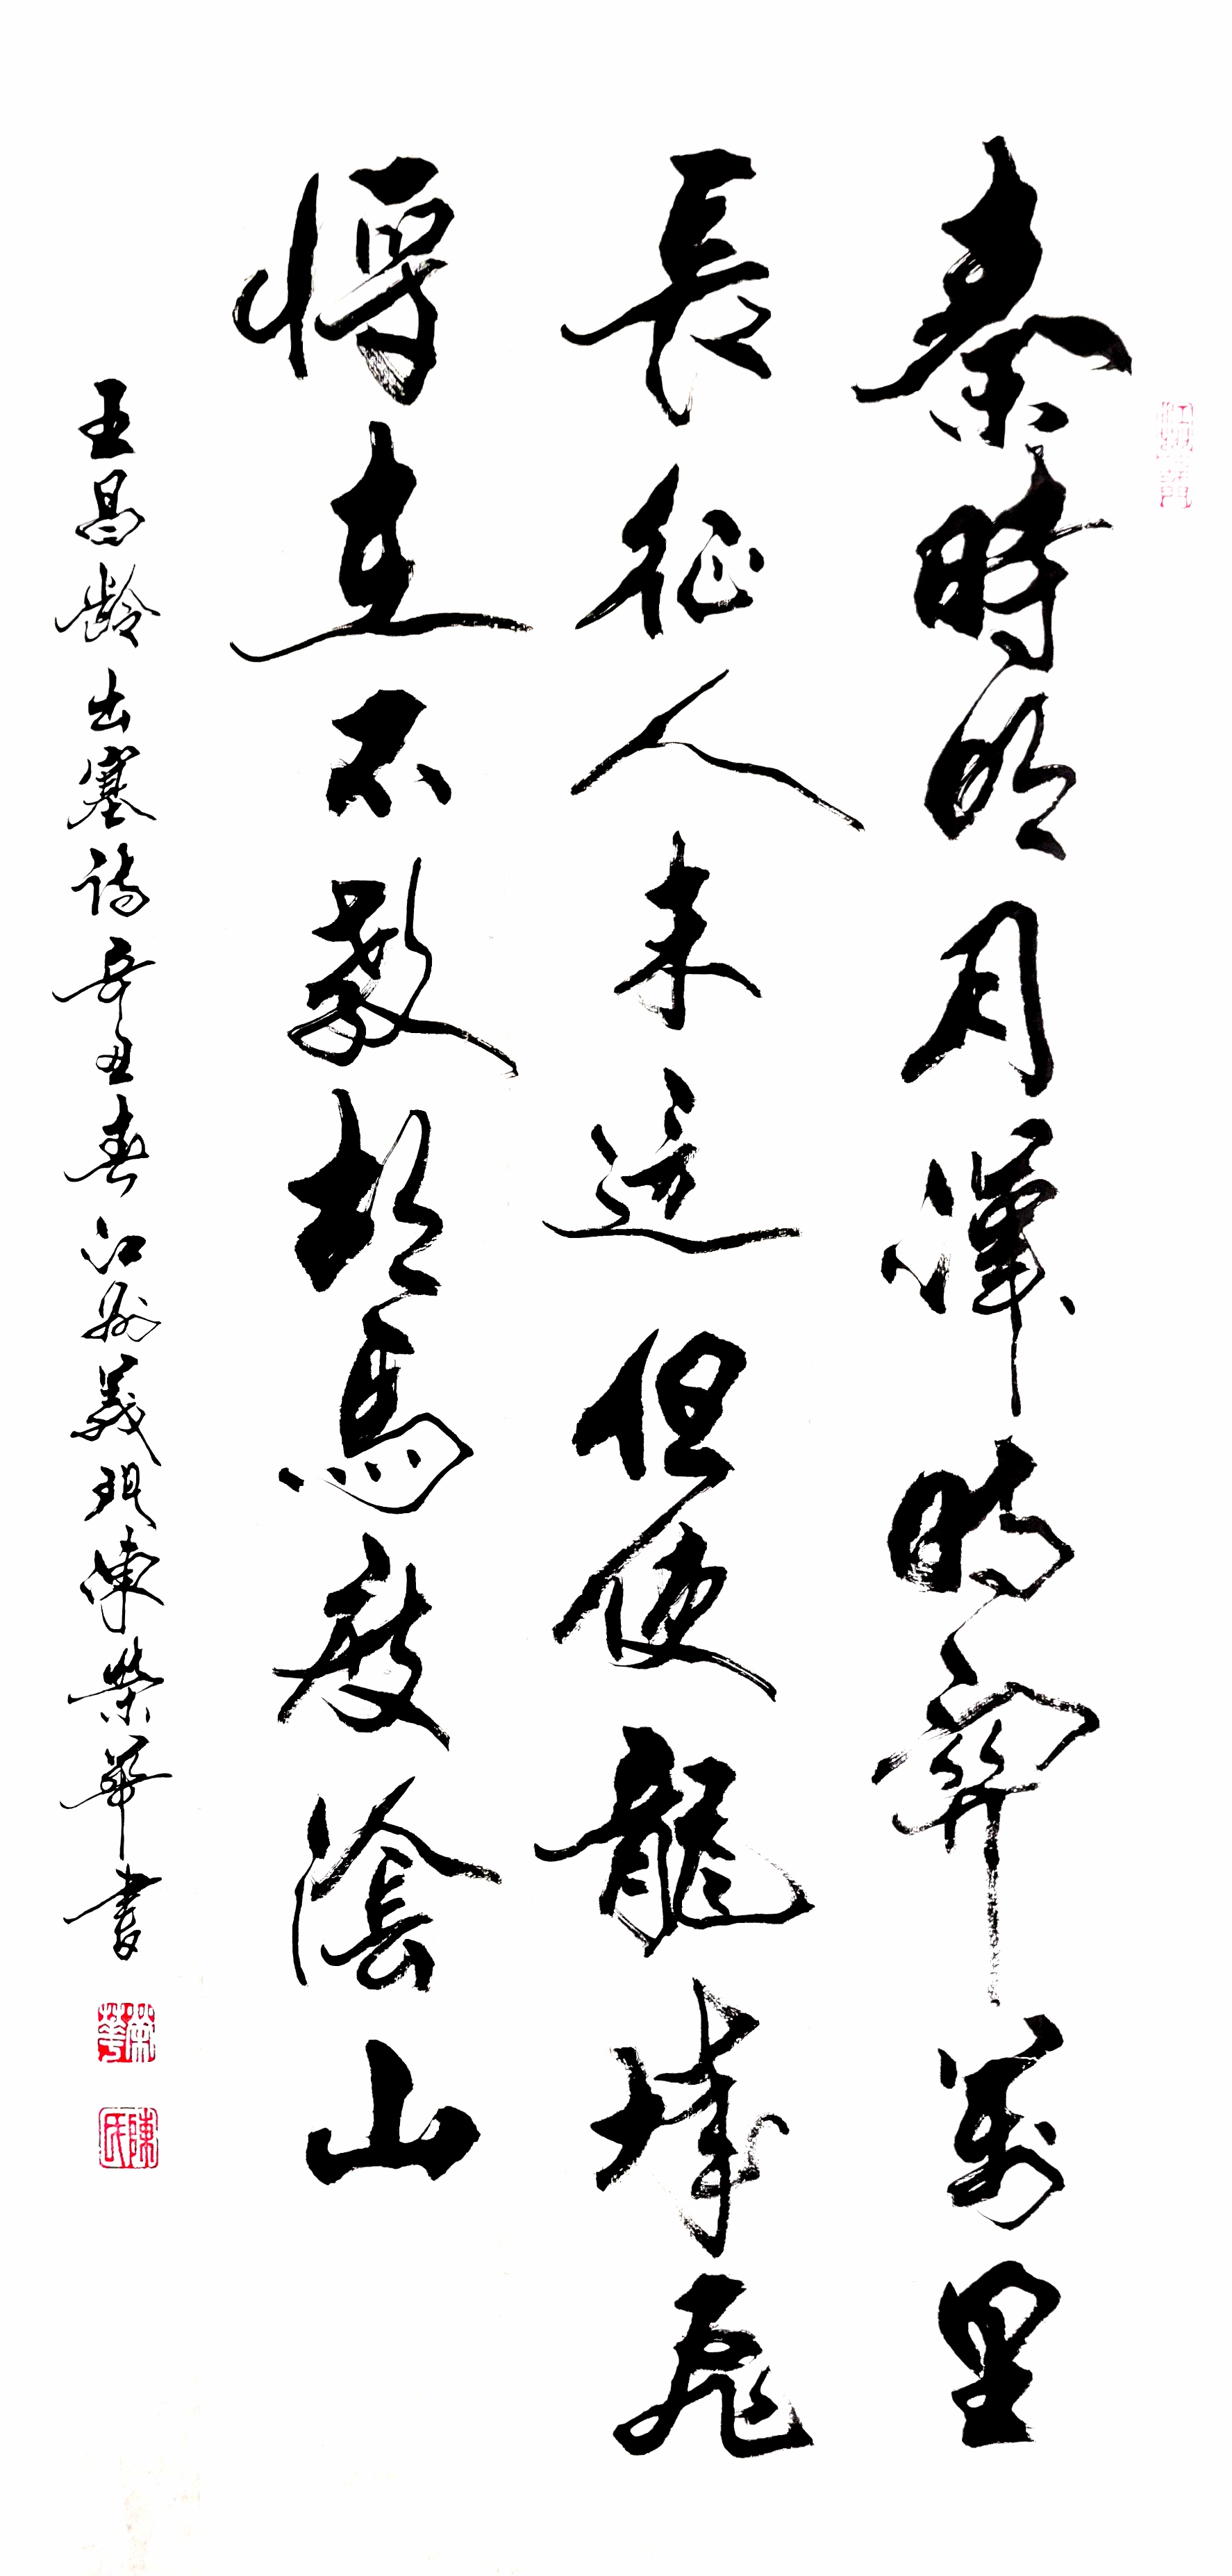 秦時明月漢時關萬里
長征人未還但使龍城飛
將在不教胡馬度陰山
王昌齡出塞詩辛丑春江州義門陳榮華書
榮華
陳氏